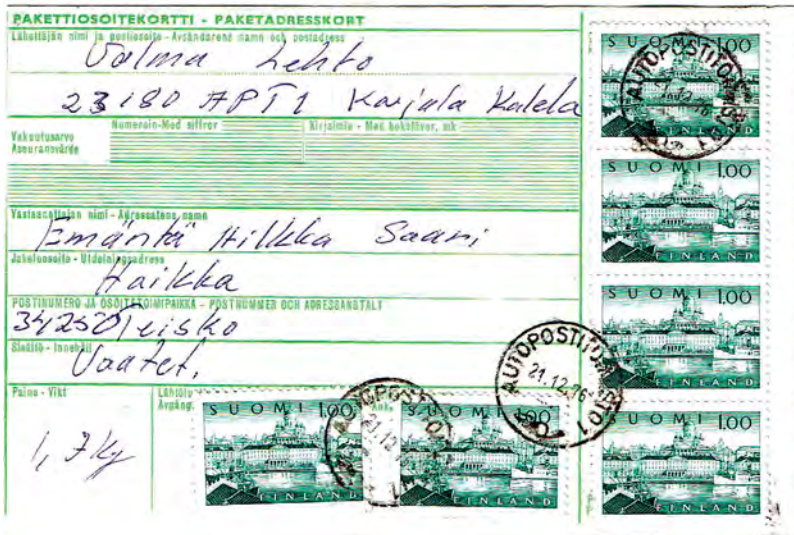 PAKETTIOSOITEKORTTI - PAKETADRESSKORT
Lähettäjän nimi ja postiosoite - Avsändarens namn och postadress
Valma Lehto
23180 APT1 Karjala Kalela
Vakuutusarvo
Assuransvärde
Numeroin - Med siffror
Kirjaimin - Med bokstäver, mk
Vastaanottajan nimi - Adressatens namn
Emäntä Hilkka Saari
Jakeluosoite - Utdelningsadress
Haikka
POSTINUMERO JA OSOITETOIMIPAIKKA - POSTNUMMER OCH ADRESSANSTALT
34250 Teisko
Sisältö - Innehåll
Vaatet.
Paino - Vikt
1,7 kg
Lähtö
Avgång.
SUOMI 1.00
FINLAND
SUOMI 1.00
FINLAND
SUOMI 1.00
FINLAND
SUOMI 1.00
FINLAND
SUOMI 1.00
FINLAND
SUOMI 1.00
FINLAND
AUTOPOSTITOIMISTO 1
21.12.76